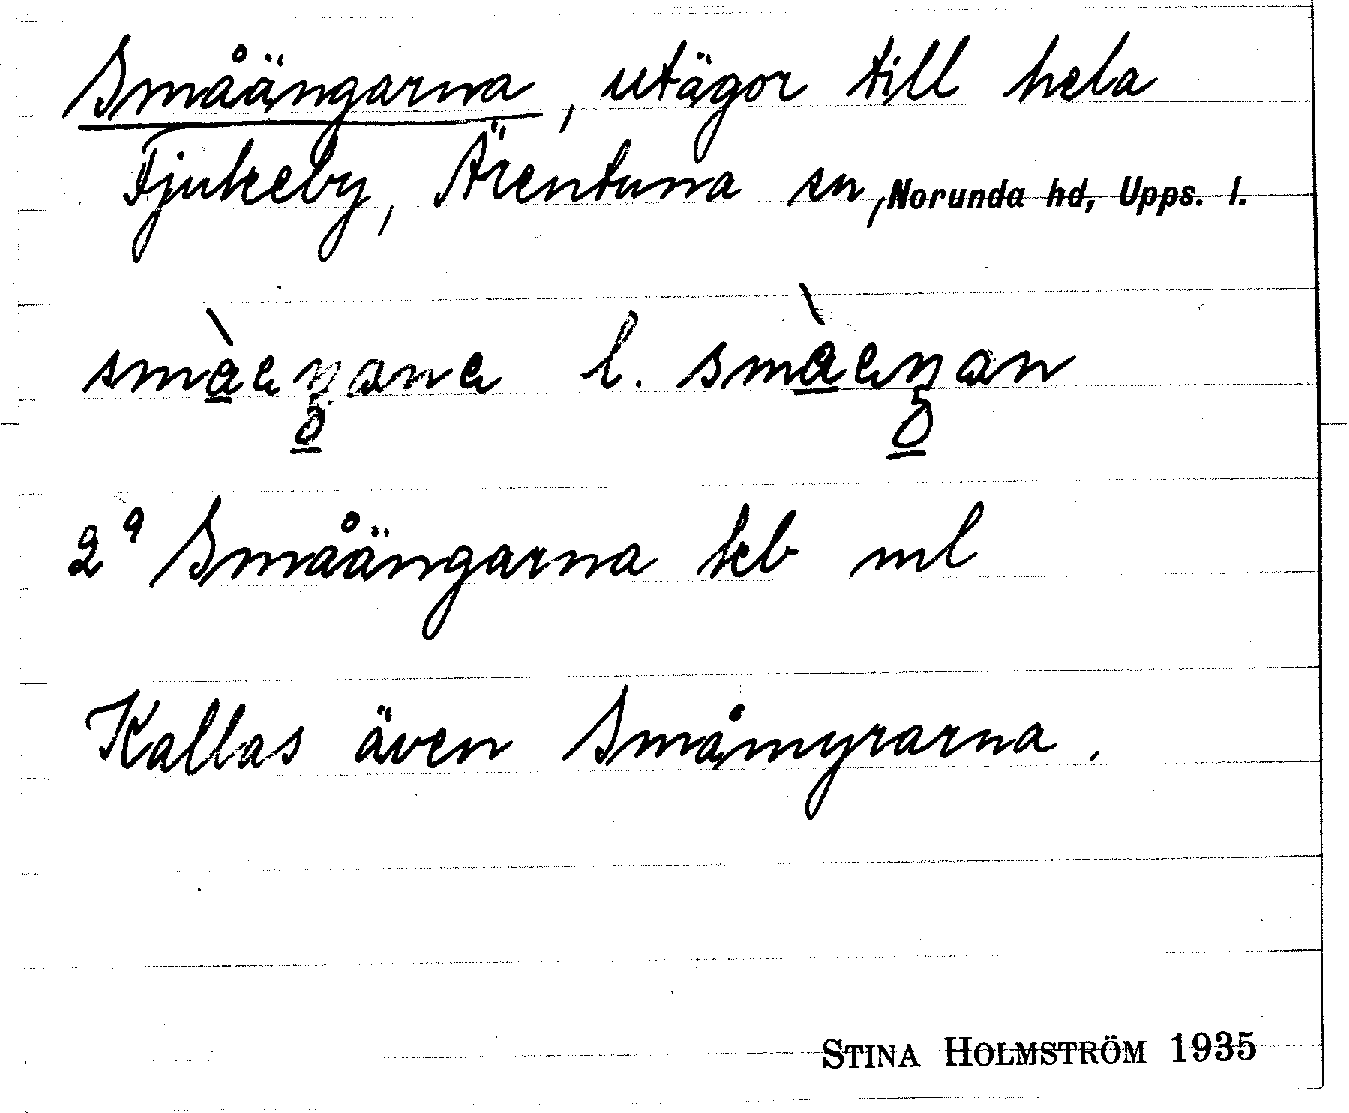 Småängarna, utägor till hela
Fjukeby, Ärentuna sn, Norunda hd, Upps. l.
l.
Småängarna keb ml
Kallas även Småmyrarna.
STINA HOLMSTRÖM 1935